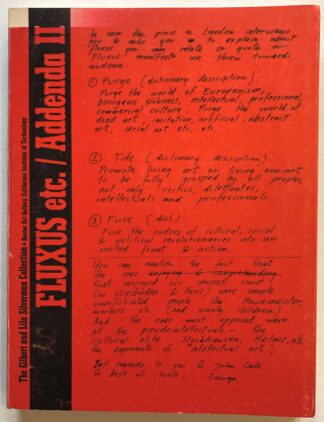 The Gilbert and Lila Silverman Collection • Baxter Art Gallery, California Institute of Technology
FLUXUS etc. / Addenda II
In case the press in London interviews
you & asks you to explain about
fluxus you can relate or quote our
Fluxus' manifesto we threw towards
audience.
① Purge (dictionary description)
Purge the world of Europanism,
bourgeois sickness, intellectual, professional,
commercial culture. Purge the world of
dead art, imitation, artificial, abstract
art, serial art etc. etc.
② Tide (dictionary description)
Promote living art or living non-art
to be fully grasped by all peoples,
not only critics, dilettantes,
intellectuals and professionals.
③ Fuse (dict.)
Fuse the cadres of cultural, social
& political revolutionaries into an
united front & action.
You can mention the fact that
the ones enjoying & comprehending
that enjoyed our concerts most
(in Wiesbaden & Paris) were simple
unsofisticated people like Housemeister,
workers etc. (and usually children)
And the ones most opposed were
all the pseudointellectuals — the
cultural elite, Stockhausen, Helms, etc.
the exponents of "intellectual art".
Best regards to you & John Cale
& best of luck.
George